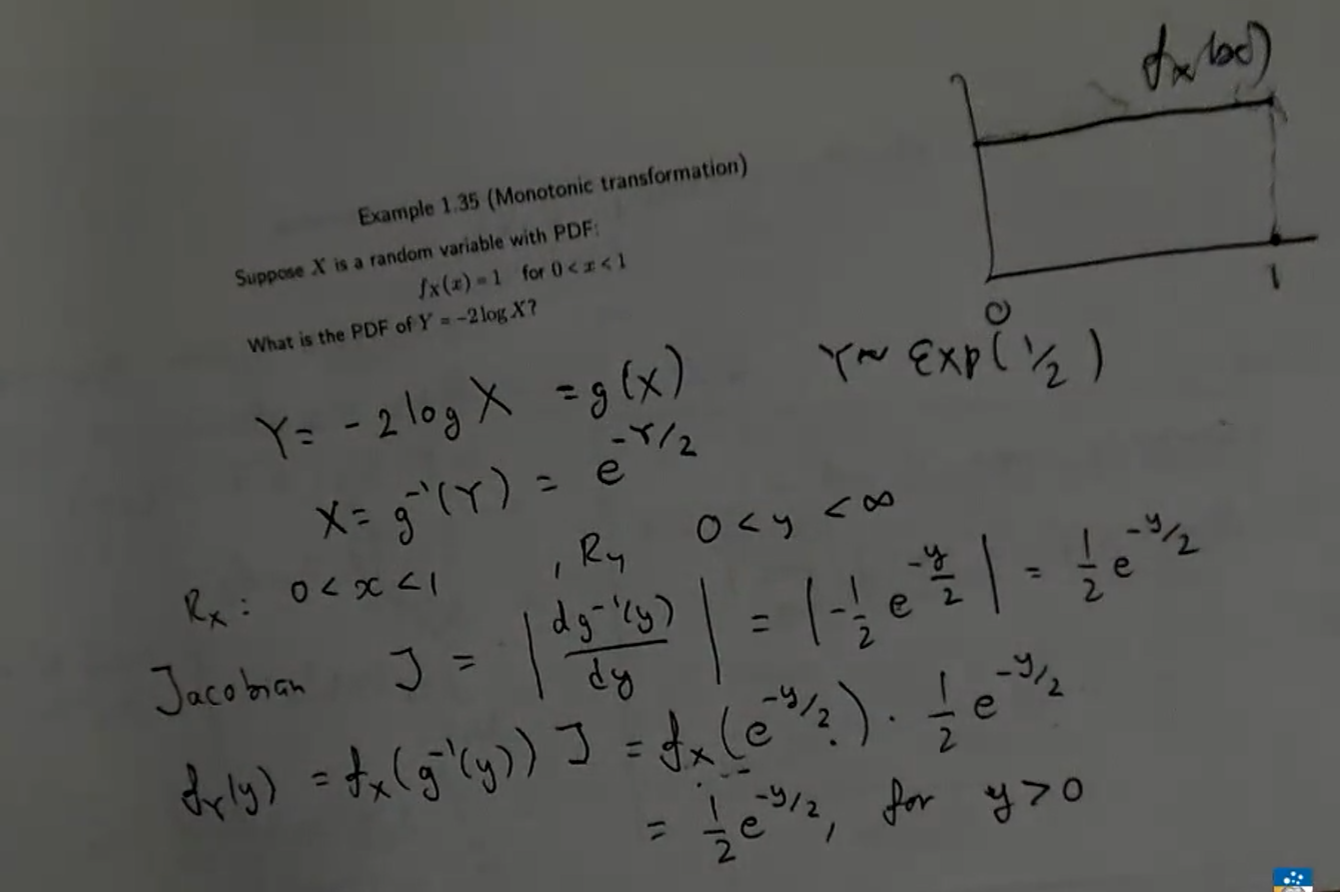 f_X(x)
0
1
Example 1.35 (Monotonic transformation)
Suppose X is a random variable with PDF:
f_X(x) = 1 for 0 < x < 1
What is the PDF of Y = −2 log X?
Y ~ Exp(1/2)
Y = -2 log X = g(X)
X = g⁻¹(Y) = e^{-Y/2}
R_X : 0 < x < 1 , R_Y 0 < y < ∞
Jacobian J = | dg⁻¹(y)/dy | = | -1/2 e^{-y/2} | = 1/2 e^{-y/2}
f_Y(y) = f_X(g⁻¹(y)) J = f_X(e^{-y/2}) · 1/2 e^{-y/2}
= 1/2 e^{-y/2}, for y > 0